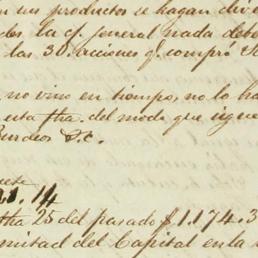 n un productos se hagan div
des la cª general nada debe
las 30. acciones q. compró S
no vino en tiempo, no lo ha
esta fha. del modo que sigue
Burdeos &.c.
fha 25 del pasado $1.174.3
mitad del Capital en la